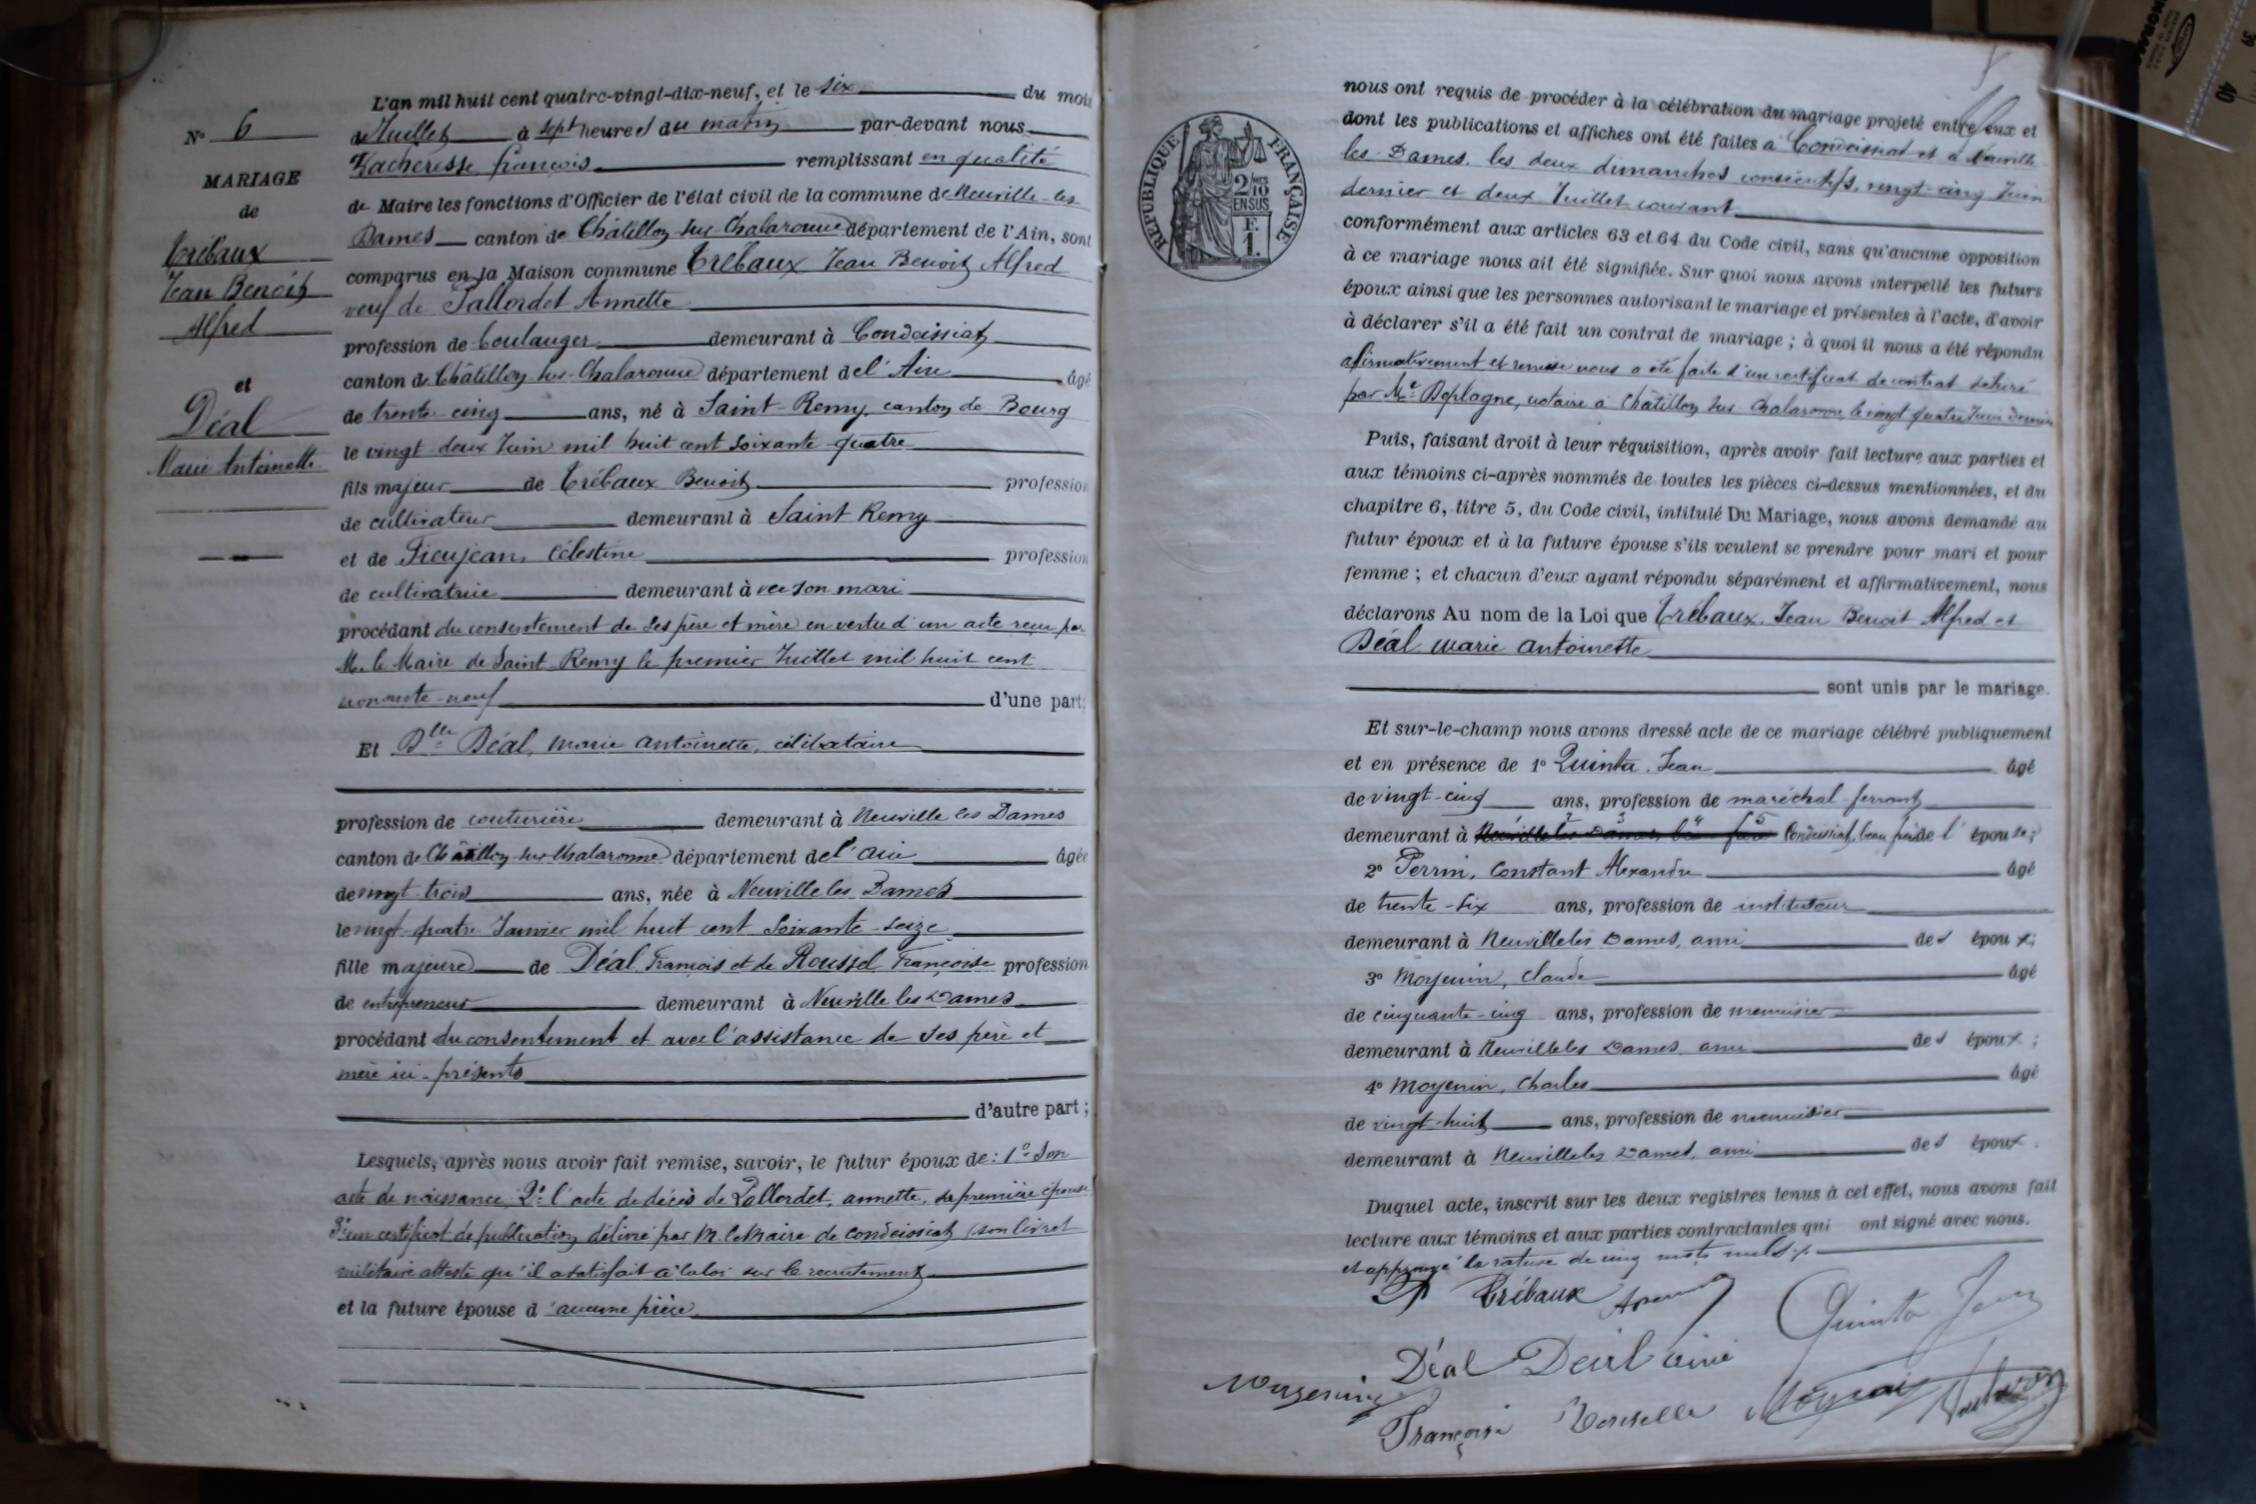 N° 6
MARIAGE
de
Trébaux
Jean Benoit
Alfred
et
Déal
Marie Antoinette
L'an mil huit cent quatre-vingt-dix-neuf, et le six du mois
de Juillet à sept heures du matin par-devant nous
Vacheresse françois remplissant en qualité
de Maire les fonctions d'Officier de l'état civil de la commune de Neuville-les
Dames canton de Châtillon sur Chalaronne département de l'Ain, sont
comparus en la Maison commune Trébaux Jean Benoit Alfred
veuf de Pallordet Annette
profession de boulanger demeurant à Condeissiat
canton de Châtillon sur Chalaronne département de l'Ain âgé
de trente cinq ans, né à Saint-Remy, canton de Bourg
le vingt deux Juin mil huit cent soixante quatre
fils majeur de Trébaux Benoit profession
de cultivateur demeurant à Saint Remy
et de Pieujean, Célestine profession
de cultivatrice demeurant à vec son mari
procédant du consentement de ses père et mère en vertu d'un acte reçu par
M. le Maire de Saint Remy le premier Juillet mil huit cent
nonante-neuf d'une part;
Et Dlle Déal, marie antoinette, célibataire
profession de couturière demeurant à Neuville les Dames
canton de Châtillon-sur-Chalaronne département de l'ain âgée
de vingt-trois ans, née à Neuville les Dames
le vingt-quatre Janvier mil huit cent soixante-seize
fille majeure de Déal, François et de Roussel Françoise profession
de entrepreneur demeurant à Neuville les Dames
procédant du consentement et avec l'assistance de ses père et
mère ici-présents
d'autre part;
Lesquels, après nous avoir fait remise, savoir, le futur époux de: 1° son
acte de naissance 2° l'acte de décès de Pallordet, annette, sa première épouse
3° un certificat de publication délivré par M. le Maire de Condeissiat (son livret
militaire atteste qu'il a satisfait à la loi sur le recrutement
et la future épouse d'aucune pièce
RÉPUBLIQUE FRANÇAISE
2/10
EN SUS
F.
1.
nous ont requis de procéder à la célébration du mariage projeté entre eux et
dont les publications et affiches ont été faites à Condeissiat et à Neuville
les-Dames. les deux dimanches consécutifs, vingt-cinq Juin
dernier et deux Juillet courant
conformément aux articles 63 et 64 du Code civil, sans qu'aucune opposition
à ce mariage nous ait été signifiée. Sur quoi nous avons interpellé les futurs
époux ainsi que les personnes autorisant le mariage et présentes à l'acte, d'avoir
à déclarer s'il a été fait un contrat de mariage; à quoi il nous a été répondu
afirmativement et remise nous a été faite d'un certificat de contrat délivré
par Me Deplagne, notaire à Châtillon sur Chalaronne, le vingt quatre Juin dernier
Puis, faisant droit à leur réquisition, après avoir fait lecture aux parties et
aux témoins ci-après nommés de toutes les pièces ci-dessus mentionnées, et du
chapitre 6, titre 5, du Code civil, intitulé Du Mariage, nous avons demandé au
futur époux et à la future épouse s'ils veulent se prendre pour mari et pour
femme; et chacun d'eux ayant répondu séparément et affirmativement, nous
déclarons Au nom de la Loi que Trébaux. Jean Benoit Alfred et
Déal marie antoinette
sont unis par le mariage.
Et sur-le-champ nous avons dressé acte de ce mariage célébré publiquement
et en présence de 1° Quinta, Jean âgé
de vingt-cinq ans, profession de maréchal-ferrant
demeurant à Condeissiat, beau frère de l'épouse;
2° Perrin, Constant Alexandre âgé
de trente-six ans, profession de instituteur
demeurant à Neuville les Dames, ami des époux;
3° Moyenin, Claude âgé
de cinquante-cinq ans, profession de menuisier
demeurant à Neuville les Dames, ami des époux;
4° Moyenin, Charles âgé
de vingt-huit ans, profession de menuisier
demeurant à Neuville les Dames, ami des époux.
Duquel acte, inscrit sur les deux registres tenus à cet effet, nous avons fait
lecture aux témoins et aux parties contractantes qui ont signé avec nous.
et approuvé la rature de cinq mots nuls
Trébaux
Quinta Jean
Déal Déal ainé
Moyenin
Françoise